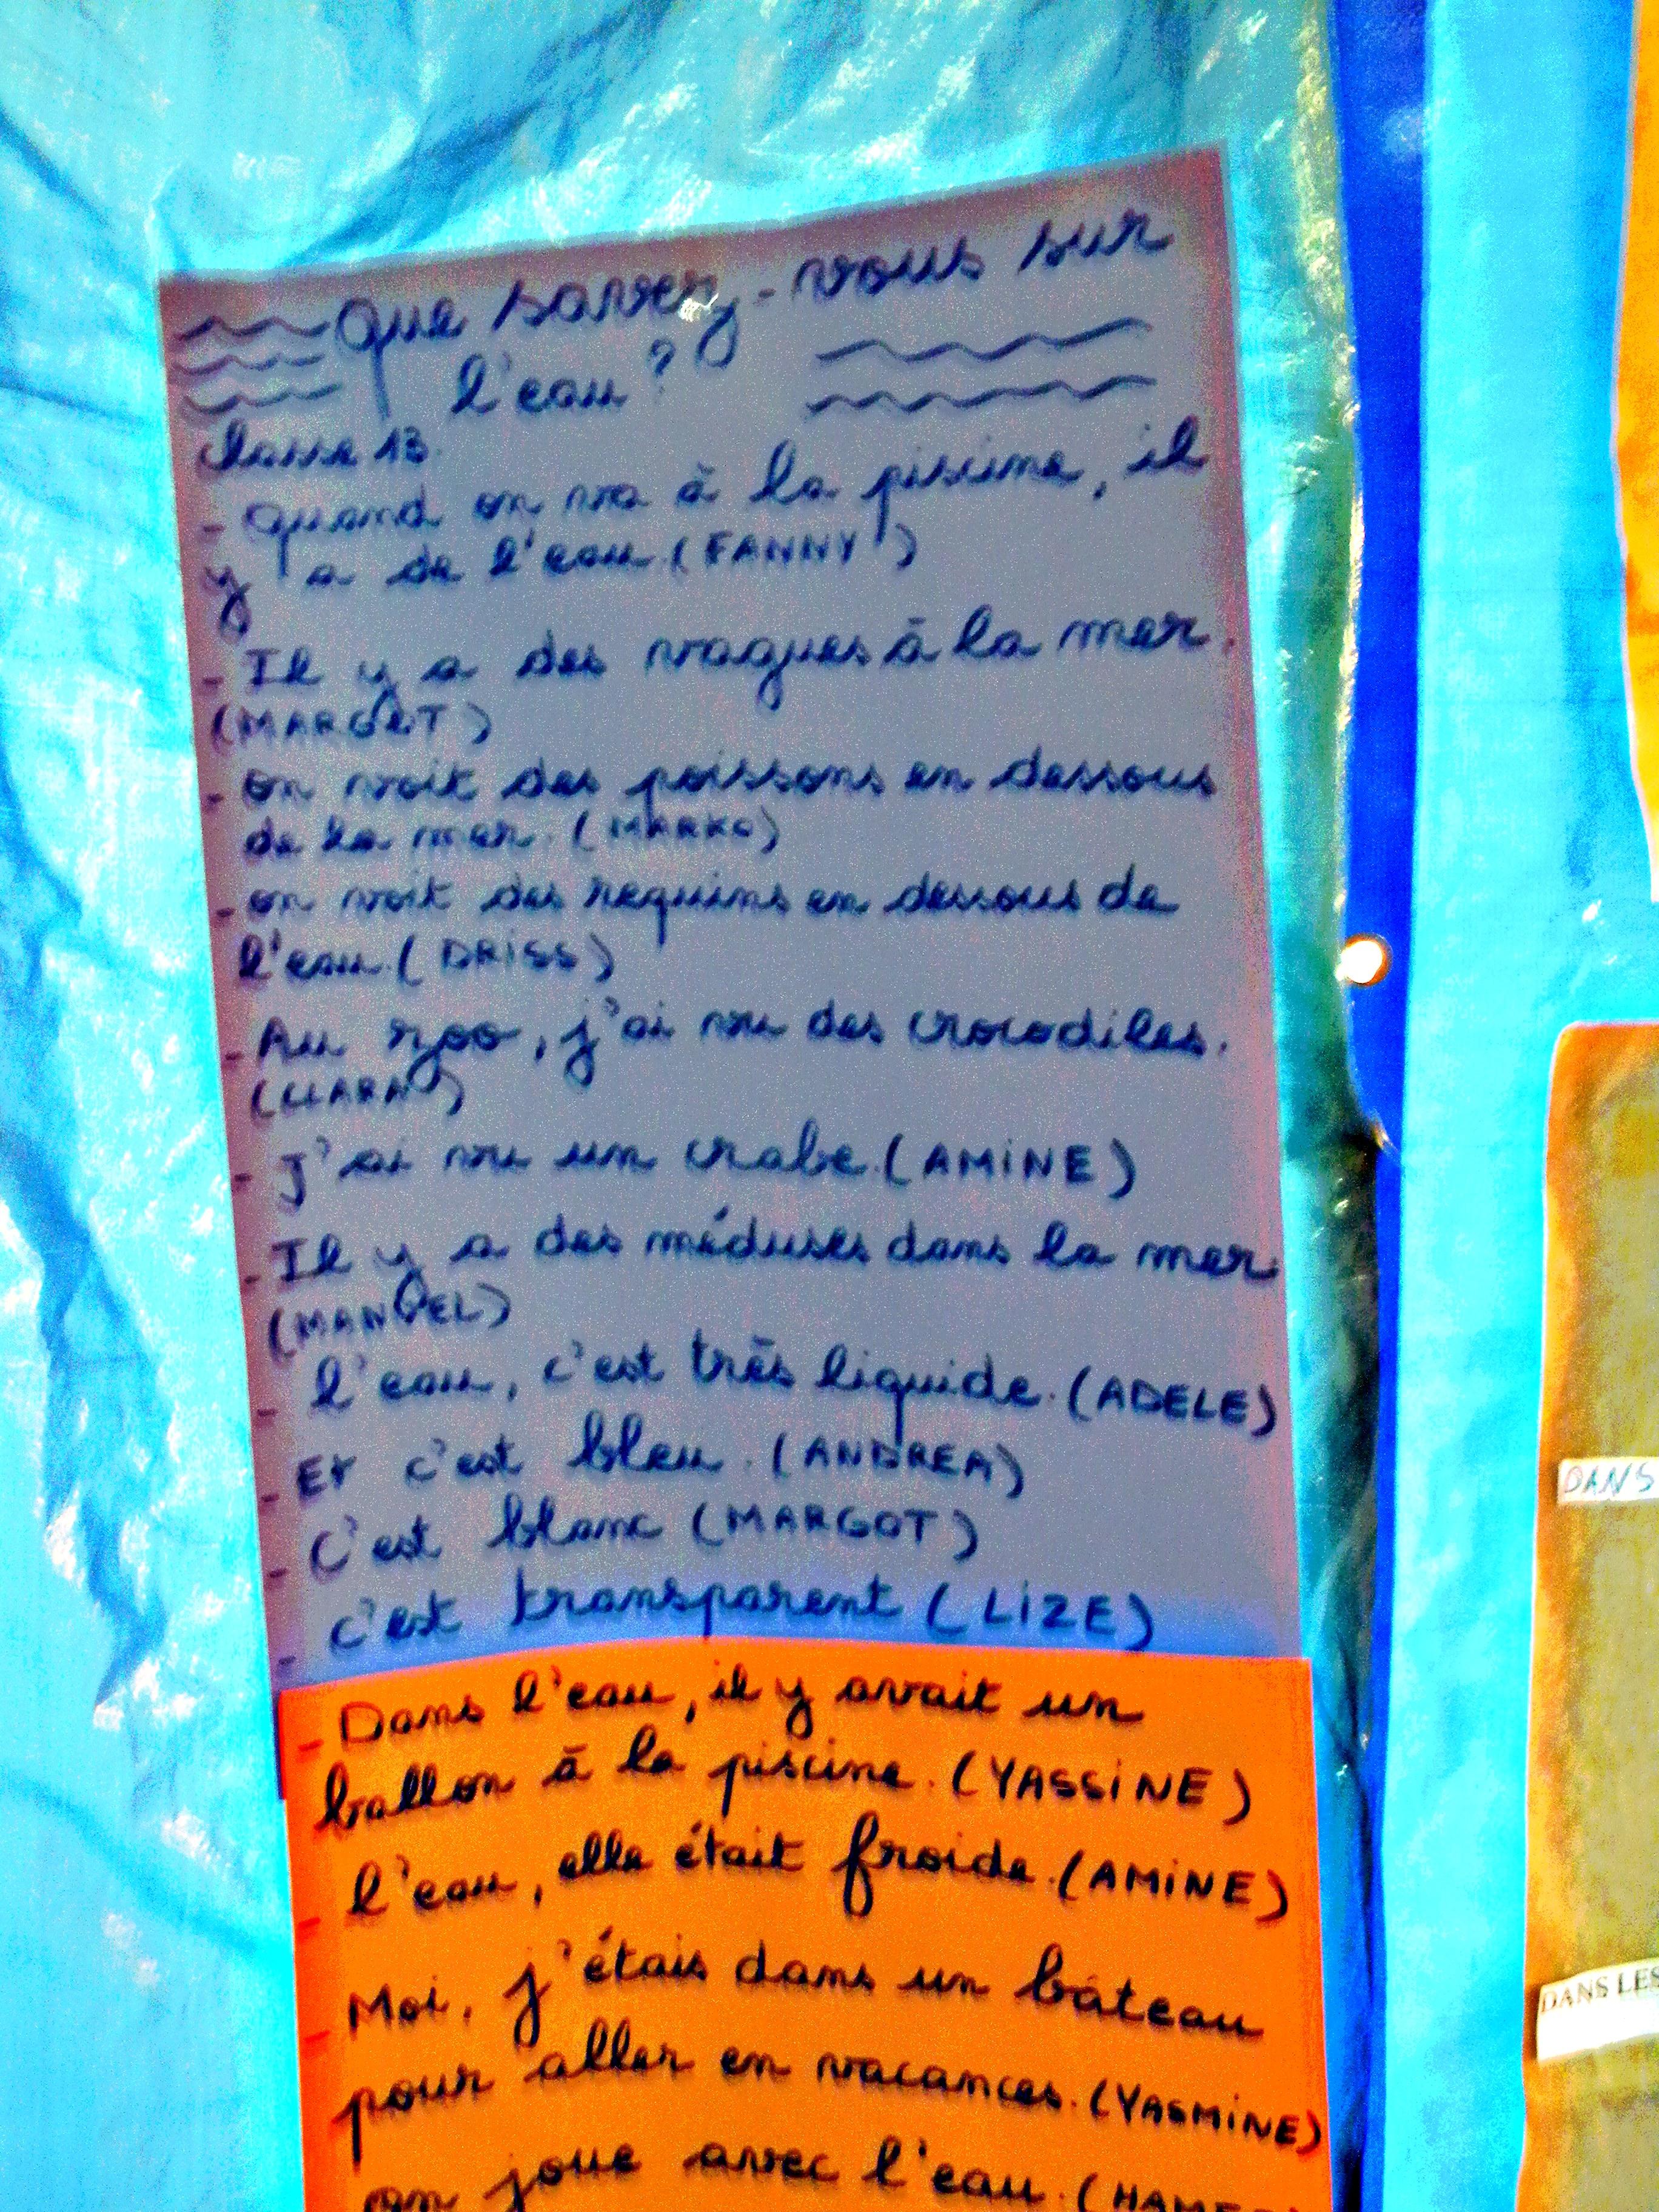 Que savez-vous sur
l'eau ?
Classe 13.
- Quand on va à la piscine, il
y a de l'eau. (FANNY)
- Il y a des vagues à la mer.
(MARGOT)
- on voit des poissons en dessous
de la mer. (MARKO)
- on voit des requins en dessous de
l'eau. (DRISS)
- Au zoo, j'ai vu des crocodiles.
(CLARA)
- J'ai vu un crabe. (AMINE)
- Il y a des méduses dans la mer
(MANOEL)
- l'eau, c'est très liquide. (ADELE)
- Et c'est bleu. (ANDREA)
- C'est blanc (MARGOT)
- c'est transparent (LIZE)
- Dans l'eau, il y avait un
ballon à la piscine. (YASSINE)
- l'eau, elle était froide. (AMINE)
- Moi, j'étais dans un bâteau
pour aller en vacances. (YASMINE)
on joue avec l'eau.
DANS
DANS LES